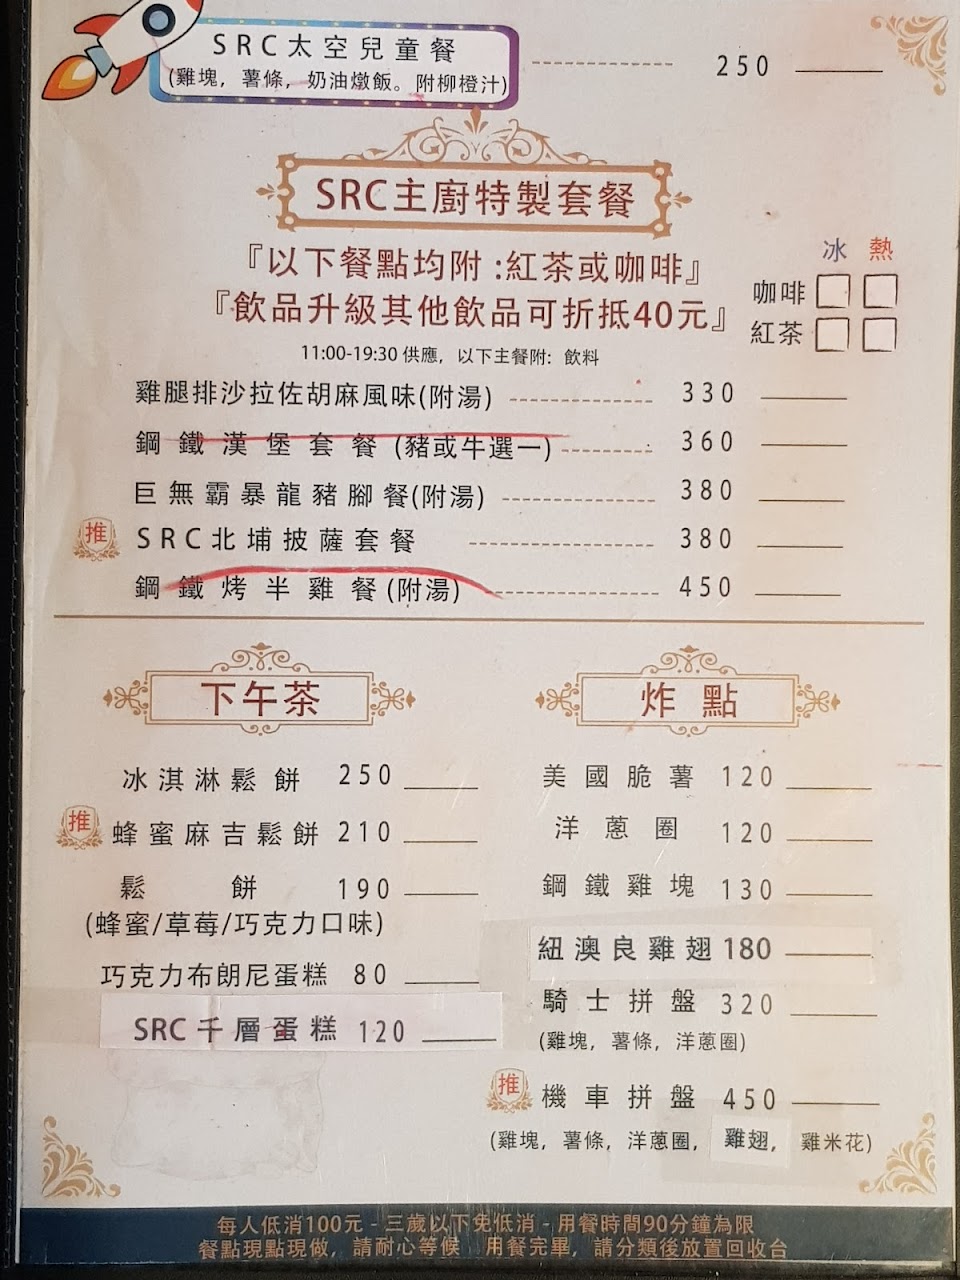 SRC太空兒童餐 250
(雞塊，薯條，奶油燉飯。附柳橙汁)
SRC主廚特製套餐
『以下餐點均附:紅茶或咖啡』
『飲品升級其他飲品可折抵40元』
冰 熱
咖啡
紅茶
11:00-19:30 供應，以下主餐附：飲料
雞腿排沙拉佐胡麻風味(附湯) 330
鋼鐵漢堡套餐(豬或牛選一) 360
巨無霸暴龍豬腳餐(附湯) 380
推 SRC北埔披薩套餐 380
鋼鐵烤半雞餐(附湯) 450
下午茶
冰淇淋鬆餅 250
推 蜂蜜麻吉鬆餅 210
鬆餅 190
(蜂蜜/草莓/巧克力口味)
巧克力布朗尼蛋糕 80
SRC千層蛋糕 120
炸點
美國脆薯 120
洋蔥圈 120
鋼鐵雞塊 130
紐澳良雞翅 180
騎士拼盤 320
(雞塊，薯條，洋蔥圈)
推 機車拼盤 450
(雞塊，薯條，洋蔥圈，雞翅，雞米花)
每人低消100元 - 三歲以下免低消 - 用餐時間90分鐘為限
餐點現點現做，請耐心等候 用餐完畢，請分類後放置回收台